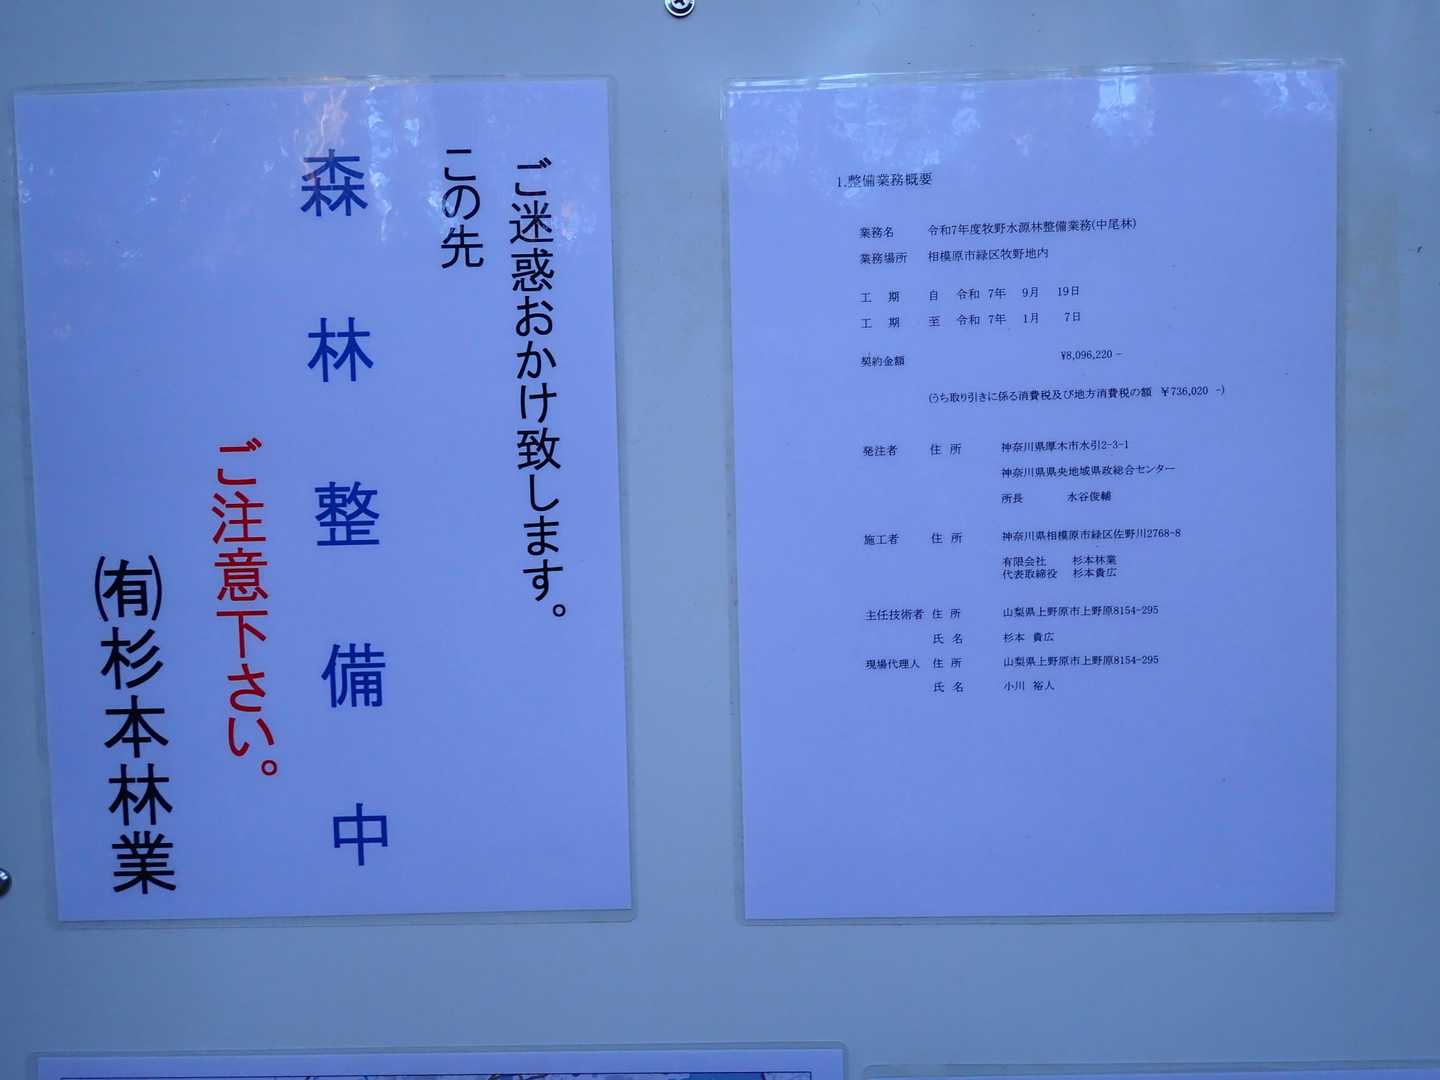 ご迷惑おかけ致します。
この先
森林整備中
ご注意下さい。
㈲杉本林業
1.整備業務概要
業務名 令和7年度牧野水源林整備業務(中尾林)
業務場所 相模原市緑区牧野地内
工 期 自 令和 7年 9月 19日
工 期 至 令和 7年 1月 7日
契約金額 ¥8,096,220－
(うち取り引きに係る消費税及び地方消費税の額 ￥736,020 -)
発注者 住 所 神奈川県厚木市水引2-3-1
神奈川県県央地域県政総合センター
所長 水谷俊輔
施工者 住 所 神奈川県相模原市緑区佐野川2768-8
有限会社 杉本林業
代表取締役 杉本貴広
主任技術者 住 所 山梨県上野原市上野原8154-295
氏 名 杉本 貴広
現場代理人 住 所 山梨県上野原市上野原8154-295
氏 名 小川 裕人